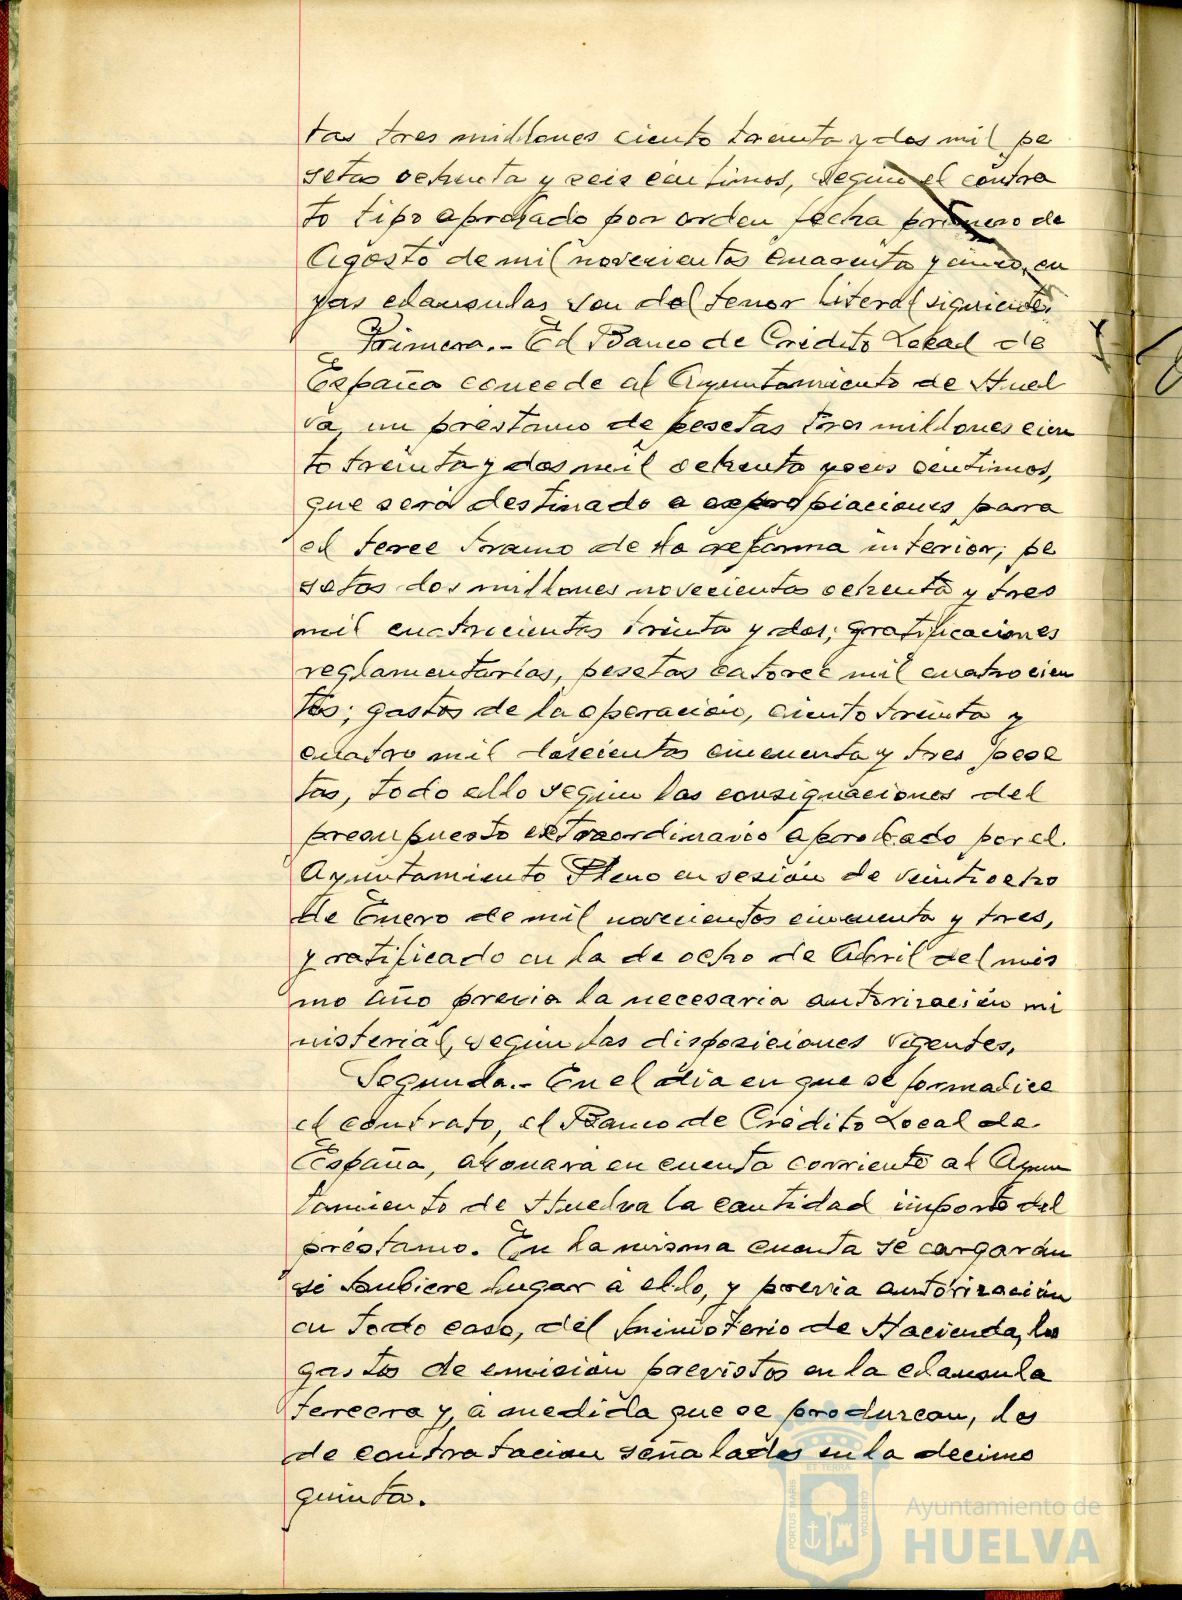 tas tres millones ciento treinta y dos mil pe
setas ochenta y seis céntimos, según el contra
to tipo aprobado por orden fecha primero de
Agosto de mil novecientos cuarenta y cinco, cu
yas clausulas son del tenor literal siguiente:
Primera.- El Banco de Crédito Local de
España concede al Ayuntamiento de Huel
va, un préstamo de pesetas tres millones cien
to treinta y dos mil ochenta y seis céntimos,
que será destinado a expropiaciones para
el tercer tramo de la reforma interior; pe
setas dos millones novecientas ochenta y tres
mil cuatrocientas treinta y dos; gratificaciones
reglamentarias, pesetas catorce mil cuatrocien
tas; gastos de la operación, ciento treinta y
cuatro mil doscientas cincuenta y tres pese
tas, todo ello según las consignaciones del
presupuesto extraordinario aprobado por el
Ayuntamiento Pleno en sesión de veintiocho
de Enero de mil novecientos cincuenta y tres,
y ratificado en la de ocho de Abril del mis
mo año previa la necesaria autorización mi
nisterial, según las disposiciones vigentes.
Segunda.- En el día en que se formalice
el contrato, el Banco de Crédito Local de
España, abonará en cuenta corriente al Ayun
tamiento de Huelva la cantidad importe del
préstamo. En la misma cuenta se cargarán
si hubiere lugar a ello, y previa autorización
en todo caso, del Ministerio de Hacienda, los
gastos de emisión previstos en la clausula
tercera y, a medida que se produzcan, los
de contratación señalados en la decimo
quinta.
PORTUS MARIS
ET TERRA
CUSTODIA
Ayuntamiento de
HUELVA